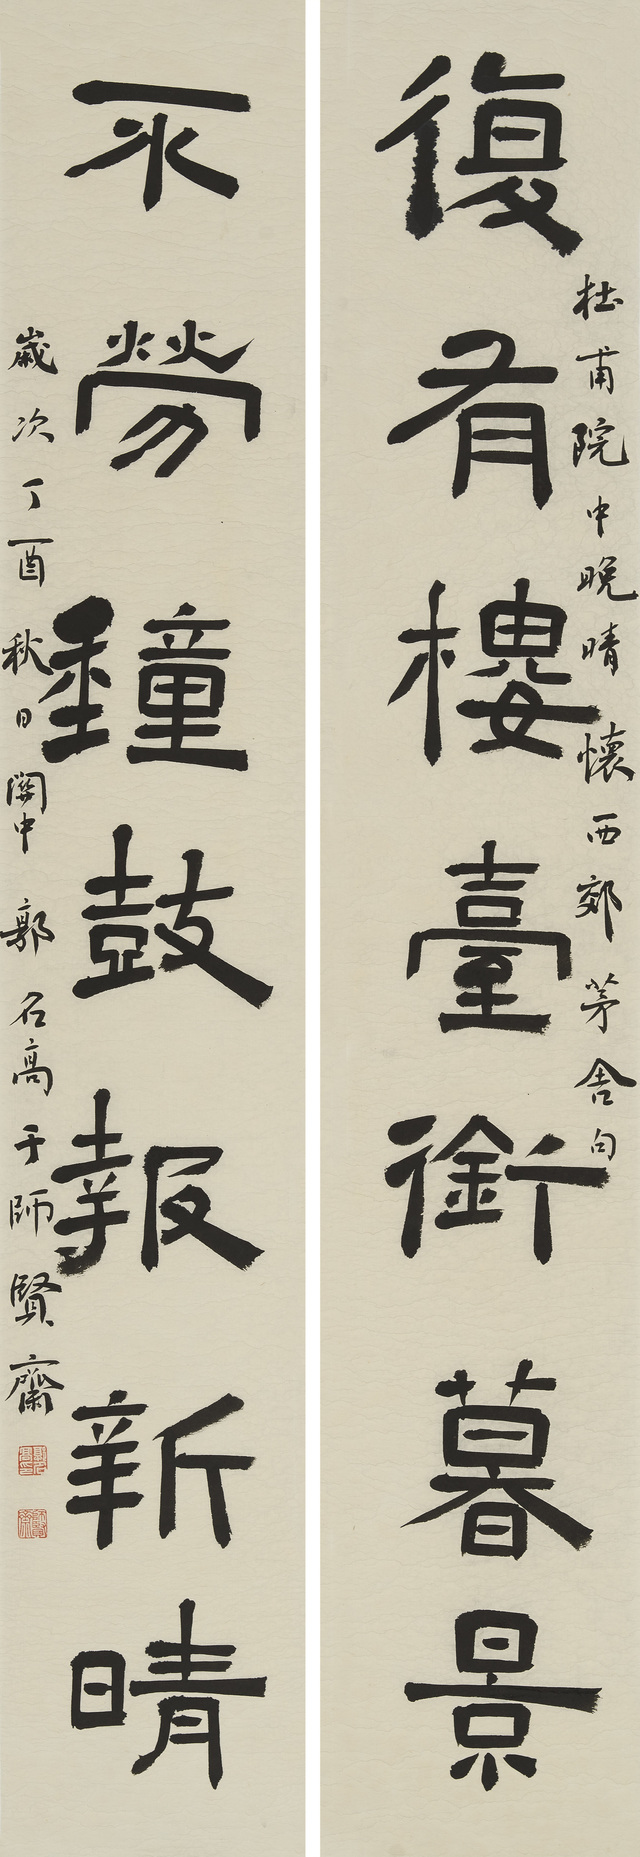 復有樓臺銜暮景
杜甫院中晚晴懷西郊茅舍句
不勞鐘鼓報新晴
歲次丁酉秋日關中郭名高于師賢齋